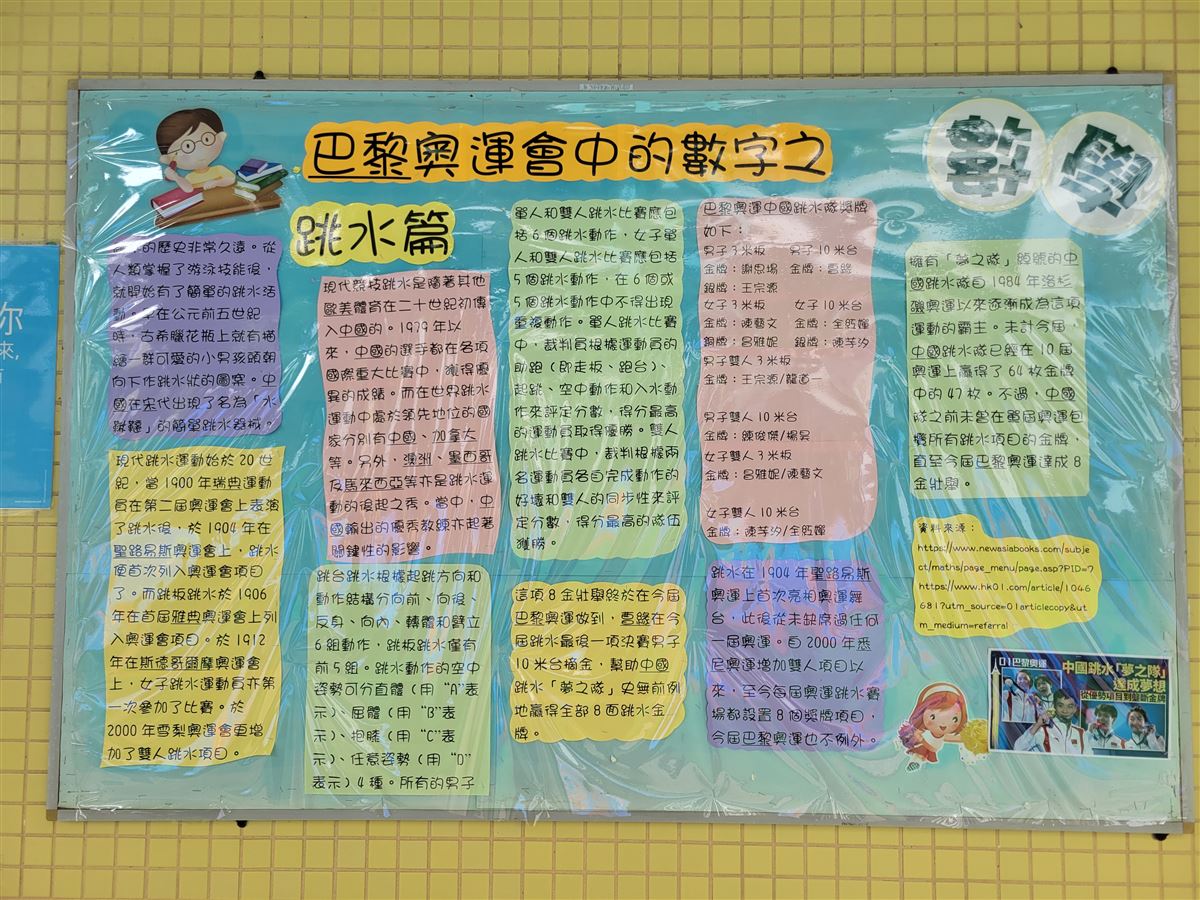 巴黎奧運會中的數字之
數學
跳水篇
的歷史非常久遠。從
人類掌握了游泳技能後，
就開始有了簡單的跳水活
動。早在公元前五世紀
時，古希臘花瓶上就有描
繪一群可愛的小男孩頭朝
向下作跳水狀的圖案。中
國在宋代出現了名為「水
鞦韆」的簡單跳水器械。
現代跳水運動始於 20 世
紀，當 1900 年瑞典運動
員在第二屆奧運會上表演
了跳水後，於 1904 年在
聖路易斯奧運會上，跳水
便首次列入奧運會項目
了。而跳板跳水於 1906
年在首屆雅典奧運會上列
入奧運會項目。於 1912
年在斯德哥爾摩奧運會
上，女子跳水運動員亦第
一次參加了比賽。於
2000 年雪梨奧運會更增
加了雙人跳水項目。
現代競技跳水是隨著其他
歐美體育在二十世紀初傳
入中國的。1979 年以
來，中國的選手都在各項
國際重大比賽中，獲得優
異的成績。而在世界跳水
運動中處於領先地位的國
家分別有中國、加拿大
等。另外，澳洲、墨西哥
及馬來西亞等亦是跳水運
動的後起之秀。當中，中
國輸出的優秀教練亦起著
關鍵性的影響。
跳台跳水根據起跳方向和
動作結構分向前、向後、
反身、向內、轉體和臂立
6 組動作，跳板跳水僅有
前 5 組。跳水動作的空中
姿勢可分直體（用 "A"表
示）、屈體（用 "B"表
示）、抱膝（用 "C"表
示）、任意姿勢（用 "D"
表示）4 種。所有的男子
單人和雙人跳水比賽應包
括 6 個跳水動作，女子單
人和雙人跳水比賽應包括
5 個跳水動作，在 6 個或
5 個跳水動作中不得出現
重複動作。單人跳水比賽
中，裁判員根據運動員的
助跑（即走板、跑台）、
起跳、空中動作和入水動
作來評定分數，得分最高
的運動員取得優勝。雙人
跳水比賽中，裁判根據兩
名運動員各自完成動作的
好壞和雙人的同步性來評
定分數，得分最高的隊伍
獲勝。
這項 8 金壯舉終於在今屆
巴黎奧運做到，曹緣在今
屆跳水最後一項決賽男子
10 米台摘金，幫助中國
跳水「夢之隊」史無前例
地贏得全部 8 面跳水金
牌。
巴黎奧運中國跳水隊獎牌
如下：
男子 3 米板 男子 10 米台
金牌：謝思埸 金牌：曹緣
銀牌：王宗源
女子 3 米板 女子 10 米台
金牌：陳藝文 金牌：全紅嬋
銅牌：昌雅妮 銀牌：陳芋汐
男子雙人 3 米板
金牌：王宗源/龍道一
男子雙人 10 米台
金牌：練俊傑/楊昊
女子雙人 3 米板
金牌：昌雅妮/陳藝文
女子雙人 10 米台
金牌：陳芋汐/全紅嬋
跳水在 1904 年聖路易斯
奧運上首次亮相奧運舞
台，此後從未缺席過任何
一屆奧運。自 2000 年悉
尼奧運增加雙人項目以
來，至今每屆奧運跳水賽
場都設置 8 個獎牌項目，
今屆巴黎奧運也不例外。
擁有「夢之隊」綽號的中
國跳水隊自 1984 年洛杉
磯奧運以來逐漸成為這項
運動的霸主。未計今屆，
中國跳水隊已經在 10 屆
奧運上贏得了 64 枚金牌
中的 47 枚。不過，中國
隊之前未曾在單屆奧運包
攬所有跳水項目的金牌，
直至今屆巴黎奧運達成 8
金壯舉。
資料來源：
https://www.newasiabooks.com/subje
ct/maths/page_menu/page.asp?PID=7
https://www.hk01.com/article/1046
681?utm_source=01articlecopy&ut
m_medium=referral
01巴黎奧運
中國跳水「夢之隊」
達成夢想
從優勢項目到壟斷金牌
你
來，